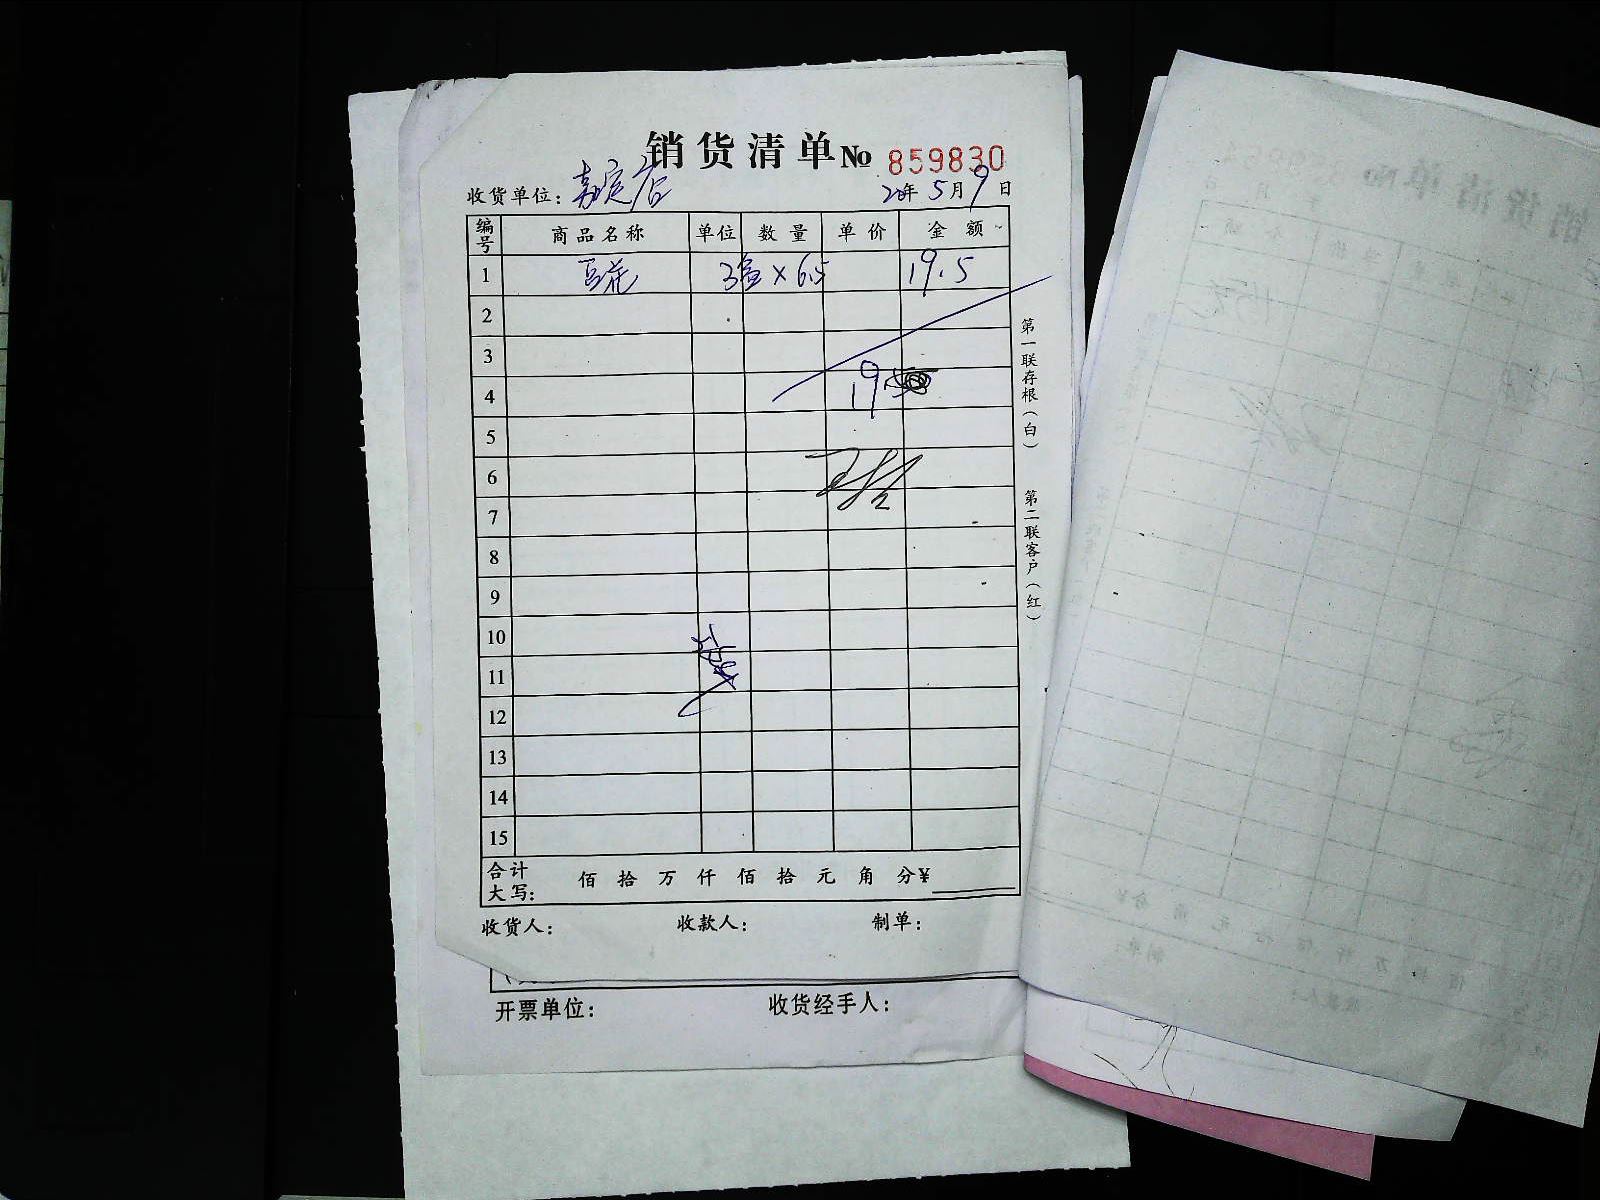 销货清单 No 859830
收货单位: 嘉定店 20年5月9日
编号 商品名称 单位 数量 单价 金额
1 豆花 3盒×6.5 19.5
2
3
4 19.5
5
6
7
8
9
10
11
12
13
14
15
合计大写: 佰 拾 万 仟 佰 拾 元 角 分 ¥
收货人: 收款人: 制单:
第一联存根(白) 第二联客户(红)
开票单位: 收货经手人: